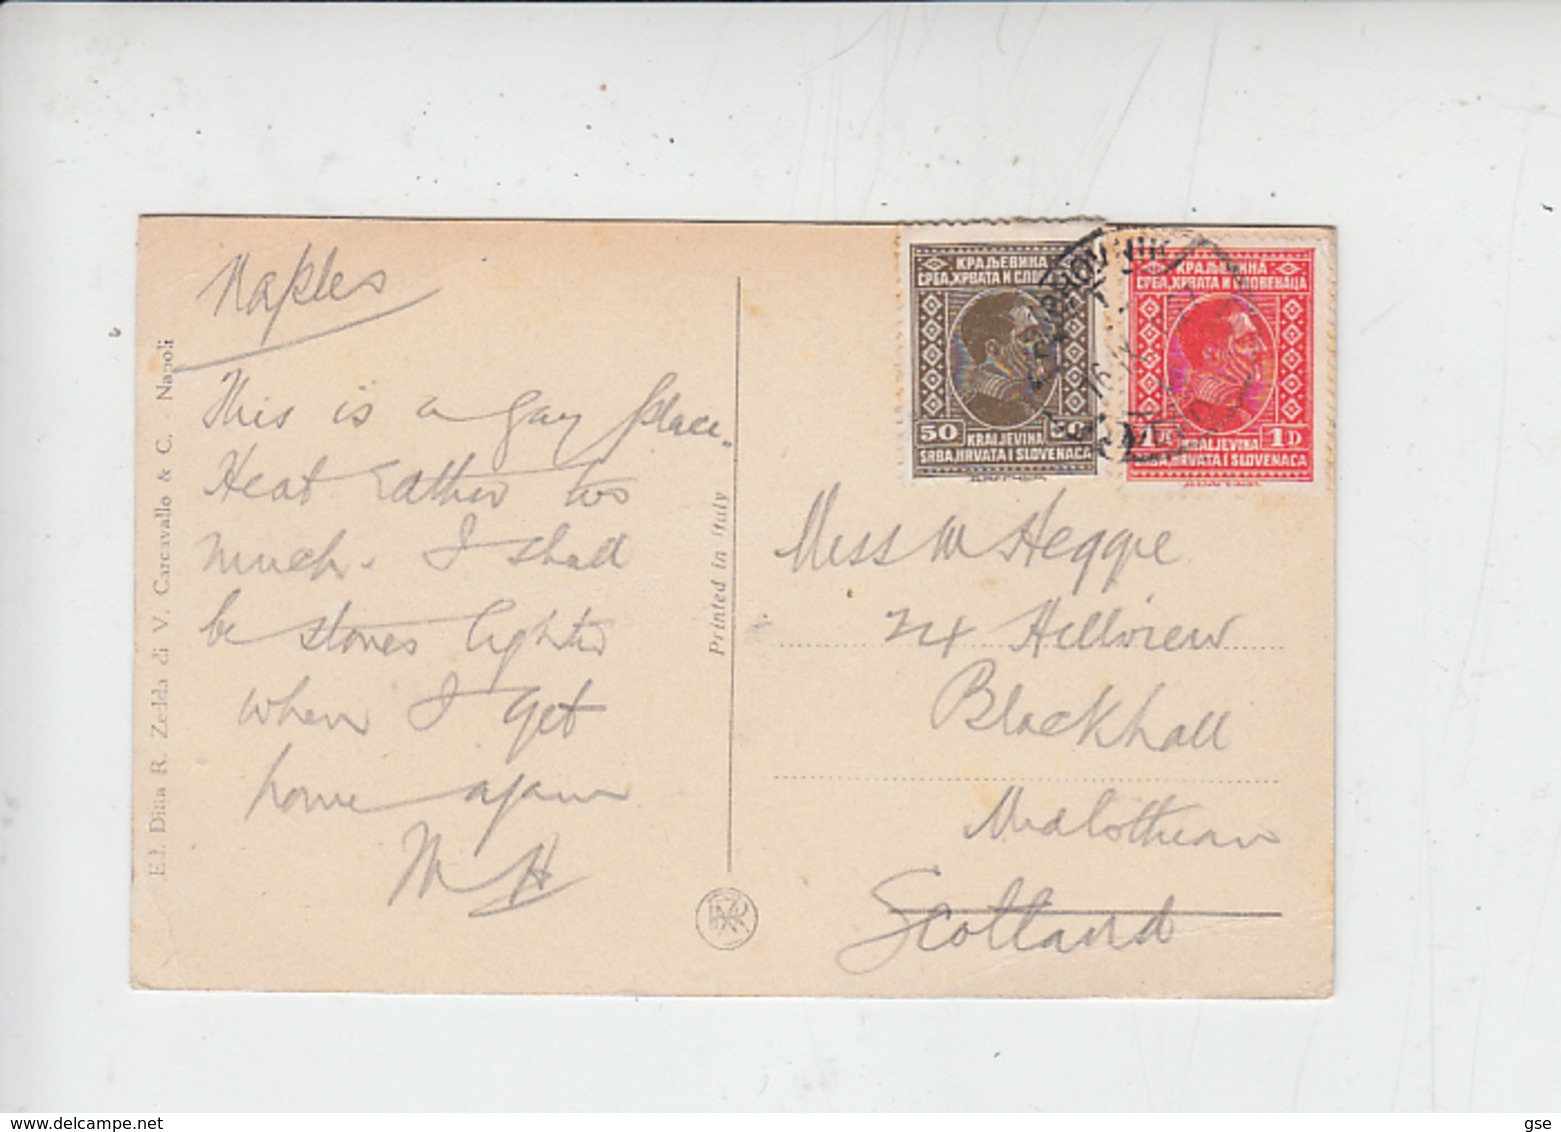 Naples
This is a gay place.
Heat rather too
much. I shall
be stones lighter
when I get
home again
M H
Ed. Ditta R. Zedda di V. Carcavallo & C. - Napoli
Printed in Italy
КРАЉЕВИНА
СРБА, ХРВАТА И СЛОВЕНАЦА
50 50
KRALJEVINA
SRBA, HRVATA I SLOVENACA
КРАЉЕВИНА
СРБА, ХРВАТА И СЛОВЕНАЦА
1D
KRALJEVINA
SRBA, HRVATA I SLOVENACA
DUBROVNIK
Miss M Heggie
24 Hillview
Blackhall
Midlothian
Scotland
gse